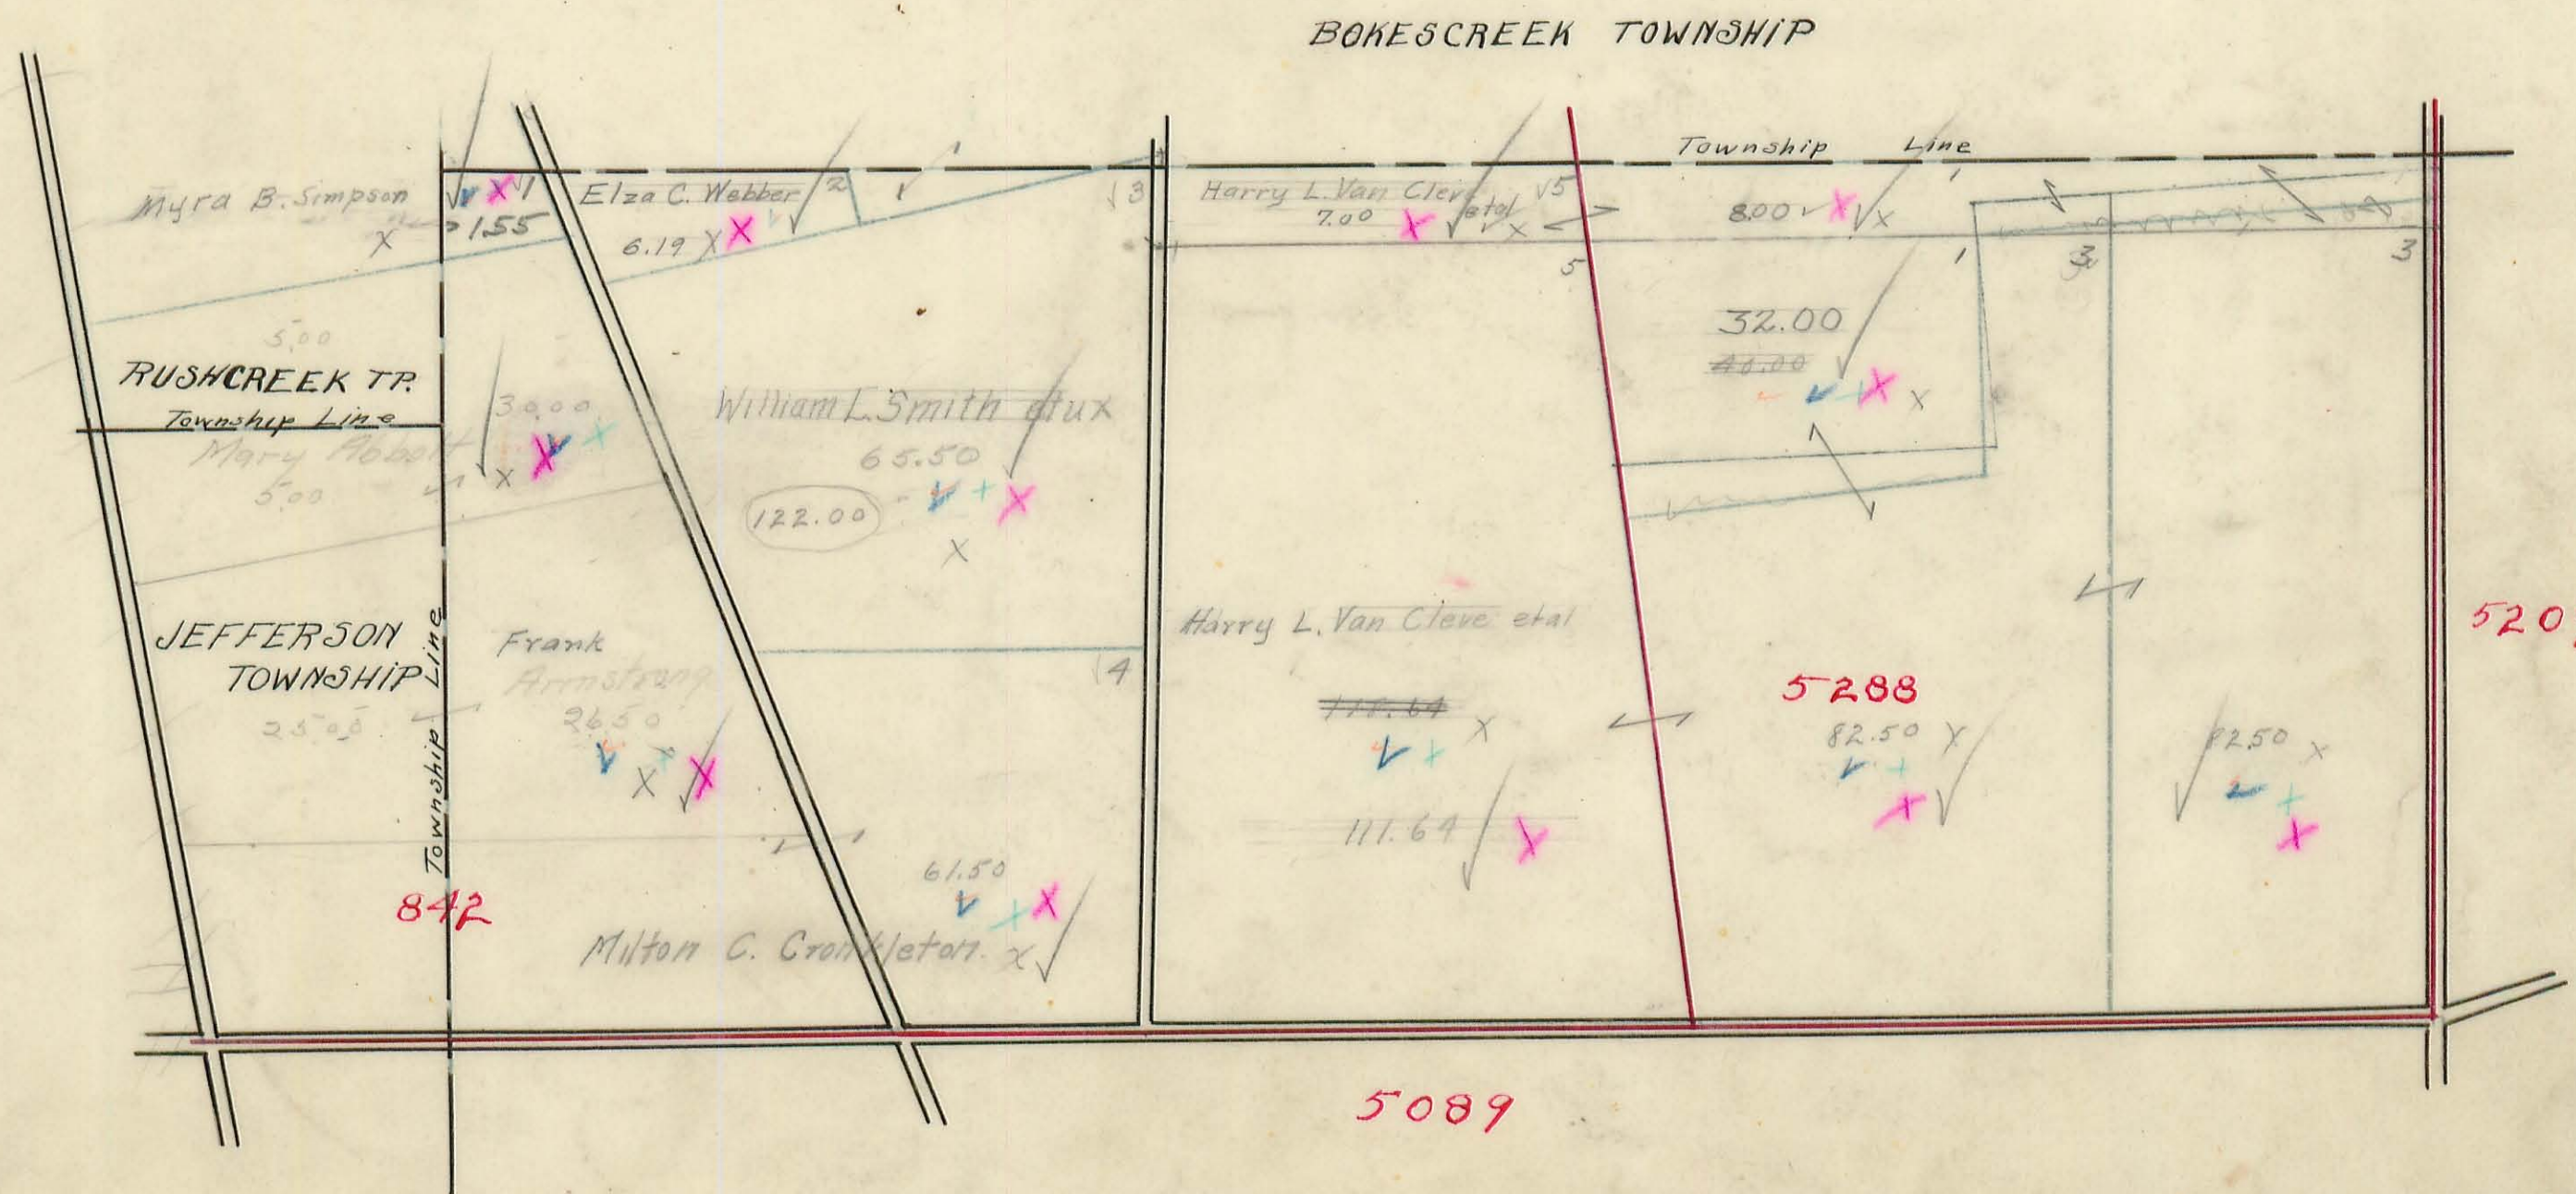 BOKESCREEK TOWNSHIP
Township Line
Myra B. Simpson
1.55
1
Elza C. Webber
2
6.19
3
Harry L. Van Cleve etal
5
7.00
8.00
5
1
3
3
5.00
RUSHCREEK TP.
Township Line
Mary
5.00
30.00
William L. Smith etux
65.50
122.00
32.00
40.00
JEFFERSON
TOWNSHIP
25.00
Township Line
Frank
Armstrong
26.50
4
Harry L. Van Cleve etal
118.64
111.64
5288
82.50
82.50
520
842
61.50
Milton C. Cronkleton.
5089